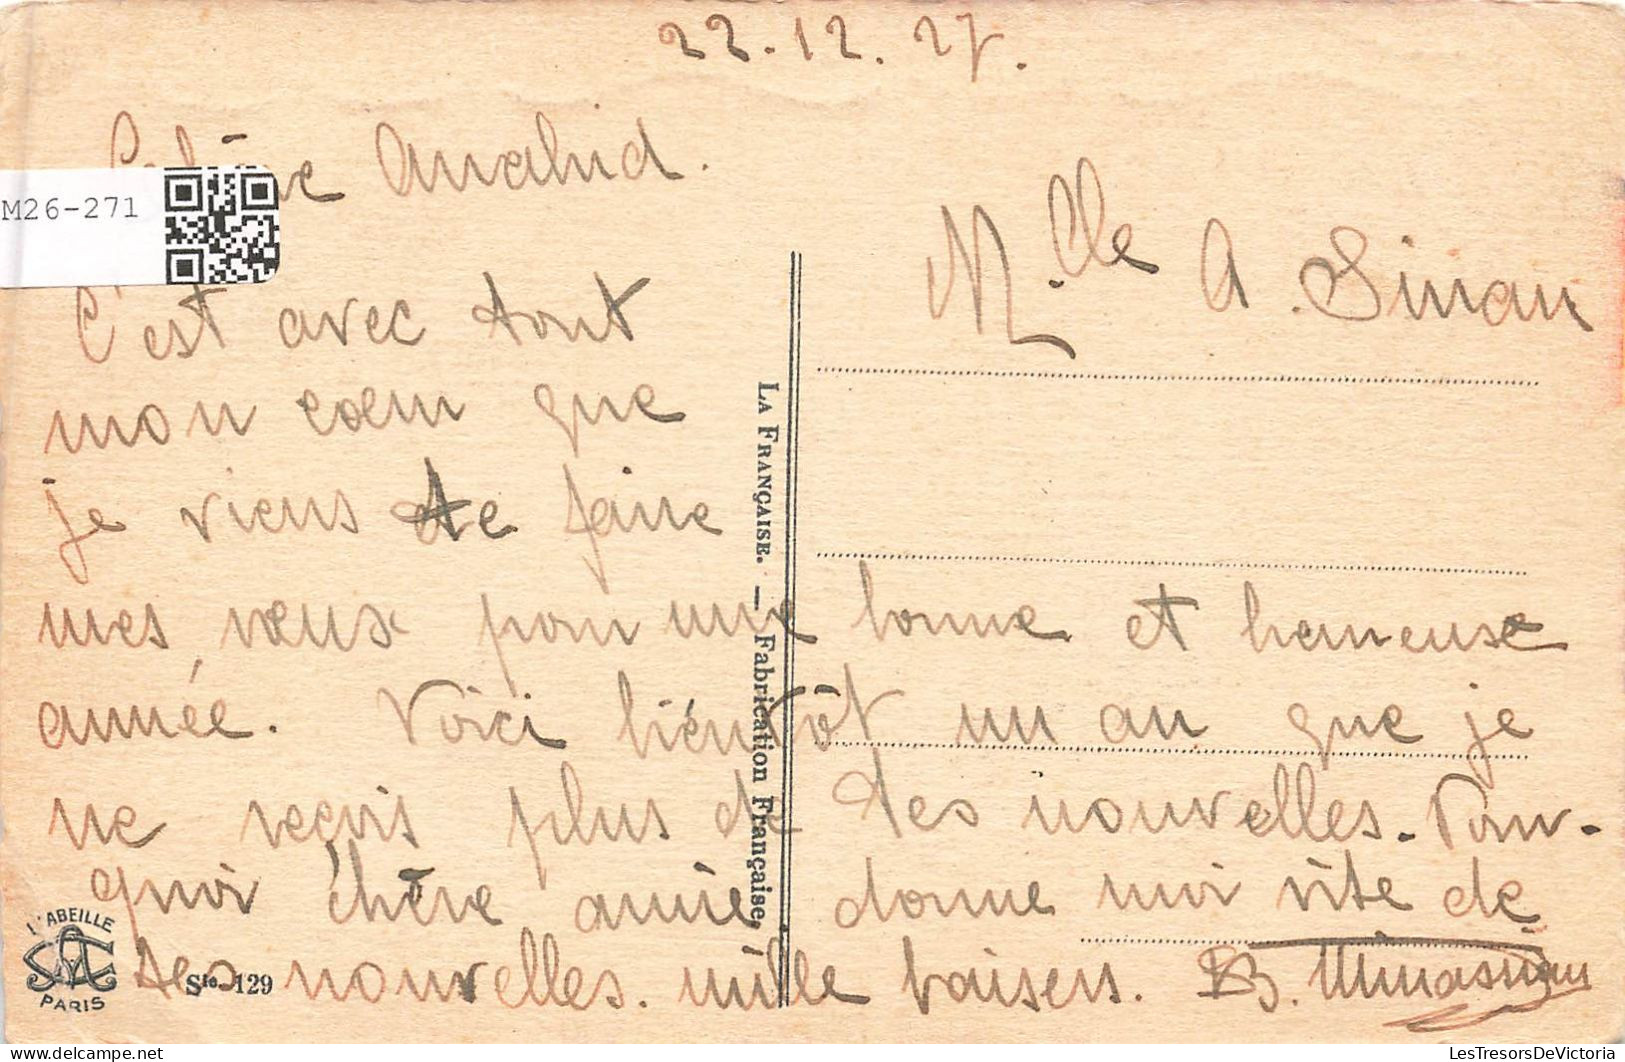 22.12.27.
Chère Anahid.
M26-271
Mlle A. Sinan
C'est avec tout
mon cœur que
je viens te faire
mes vœux pour une bonne et heureuse
année. Voici bientôt un an que je
ne reçois plus de tes nouvelles. Pour-
quoi chère amie, donne moi vite de
tes nouvelles. mille baisers. B. Minassian
LA FRANÇAISE. — Fabrication Française.
L'ABEILLE
PARIS
Sté 129
delcampe.net
LesTresorsDeVictoria